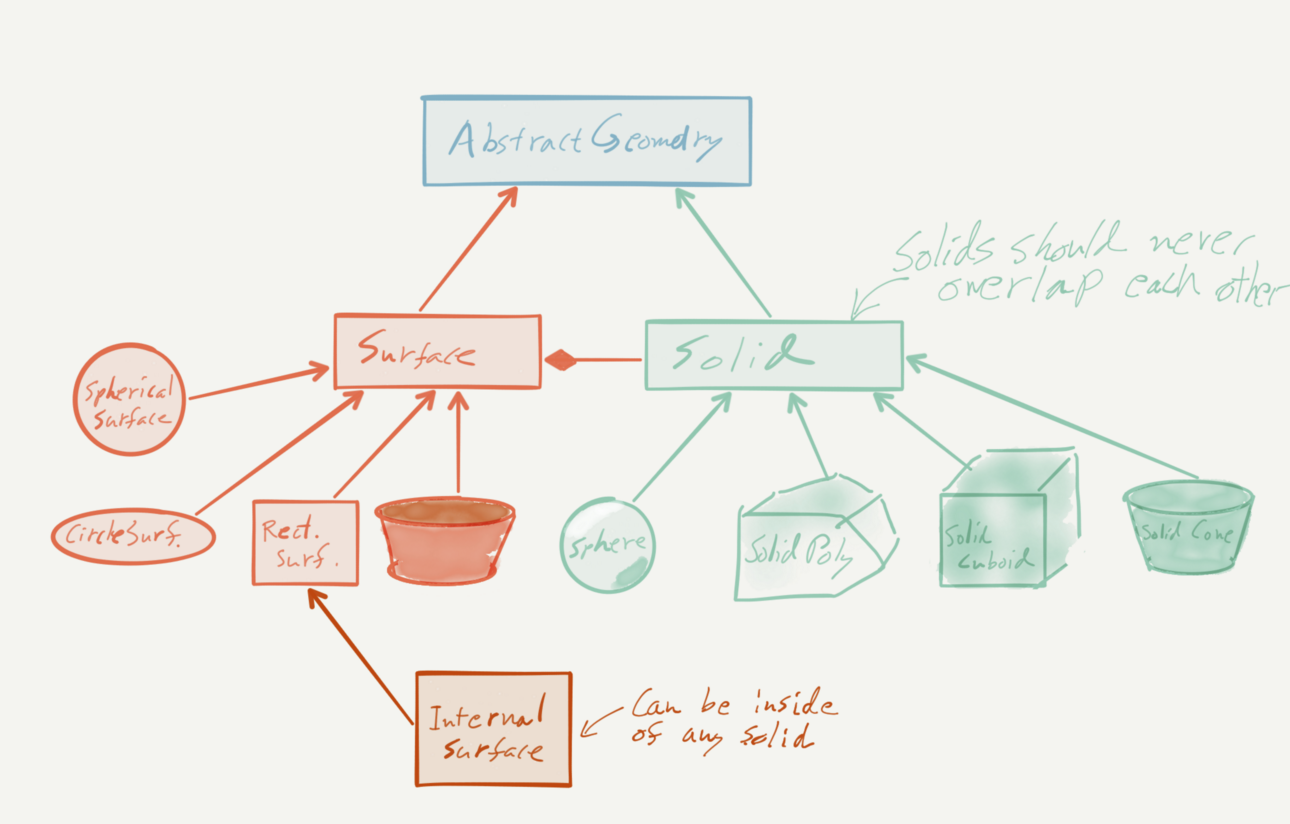 AbstractGeometry
Solids should never
overlap each other
Surface
Solid
Spherical
Surface
CircleSurf.
Rect.
Surf.
Sphere
Solid Poly
Solid
Cuboid
Solid Cone
Internal
Surface
Can be inside
of any solid